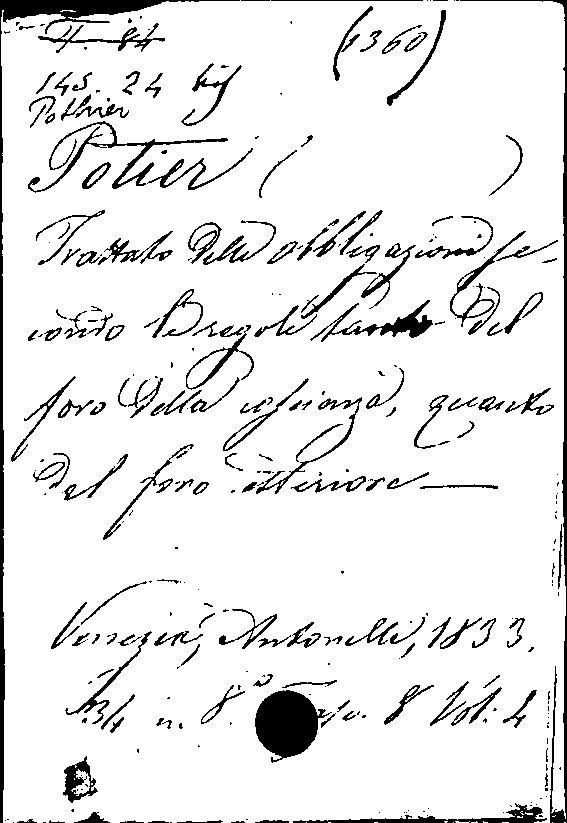 T. 84
(1360)
145. 24 bis
Pothier
Potier ( )
Trattato delle obbligazioni se-
condo le regole tanto del
foro della coscienza, quanto
del foro esteriore —
Venezia, Antonelli, 1833.
in 8.° Fasc. 8 Vol: 4